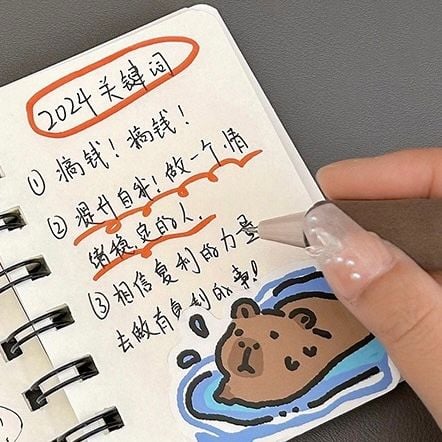 2024关键词
① 搞钱！搞钱！
② 提升自我！做一个情
绪稳定的人.
③ 相信复利的力量
去做有复利的事！